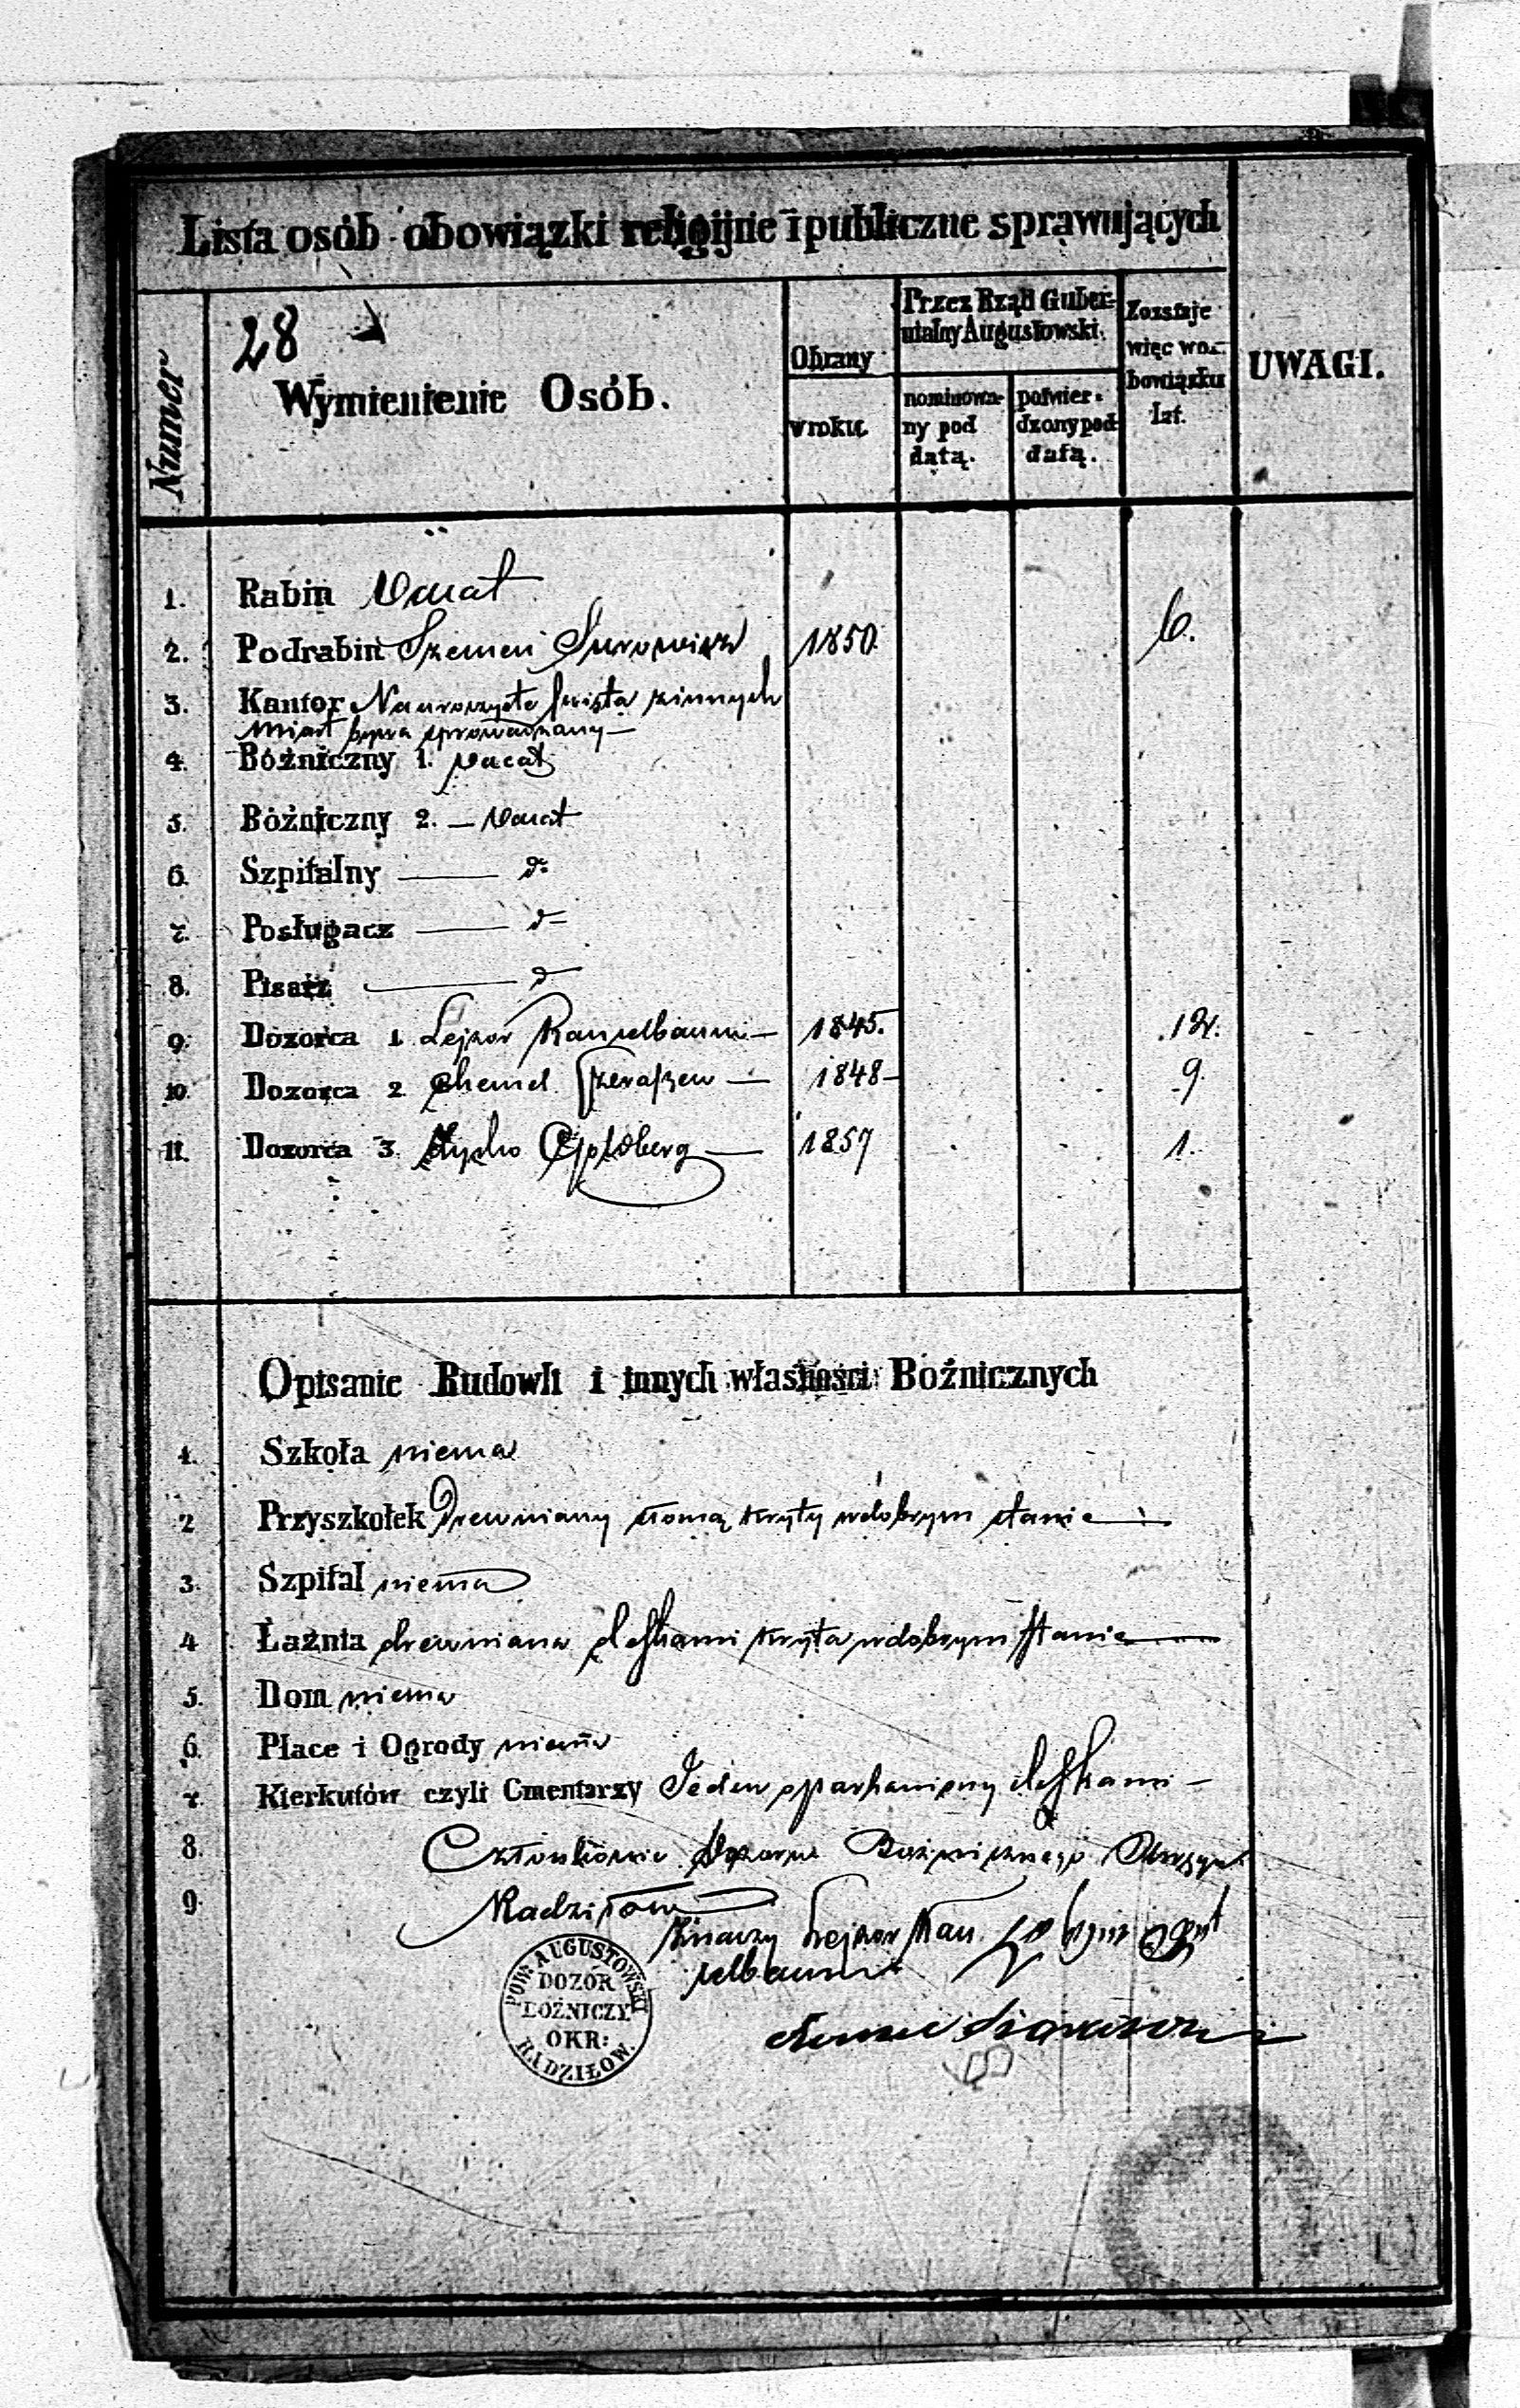 Lista osób obowiązki religijne i publiczne sprawujących
Numer
28
Wymienienie Osób.
Obrany
w roku.
Przez Rząd Guber-
nialny Augustowski.
nominowa-
ny pod
datą.
potwier-
dzony pod
datą.
Zostaje
więc w o-
bowiązku
lat.
UWAGI.
1. Rabin Vacat
2. Podrabin Szemen 1850. 6.
3. Kantor Na uroczyste święta z innych
miast bywa sprowadzany —
4. Bóżniczny 1. vacat
5. Bóżniczny 2. — Vacat
6. Szpitalny — do
7. Posługacz — do
8. Pisarz — do
9. Dozorca 1. Lejzor Kamelbaum — 1845. 12.
10. Dozorca 2. Chemel — 1848 — 9.
11. Dozorca 3. Goldberg — 1857 1.
Opisanie Budowli i innych własności Bóźnicznych
1. Szkoła niema
2 Przyszkołek Drewniany słomą kryty w dobrym stanie —
3. Szpital niema
4 Łaźnia drewniana deskami kryta w dobrym stanie —
5. Dom niema
6. Place i Ogrody niema
7. Kierkutów czyli Cmentarzy Jeden oparkaniony deskami —
8. Członkowie Dozoru Bożnicznego Okręgu
9. Radziłow
Lejzor Kam
elbaum
POW: AUGUSTOWSKI
DOZÓR
BOŻNICZY
OKR:
RADZIŁOW.